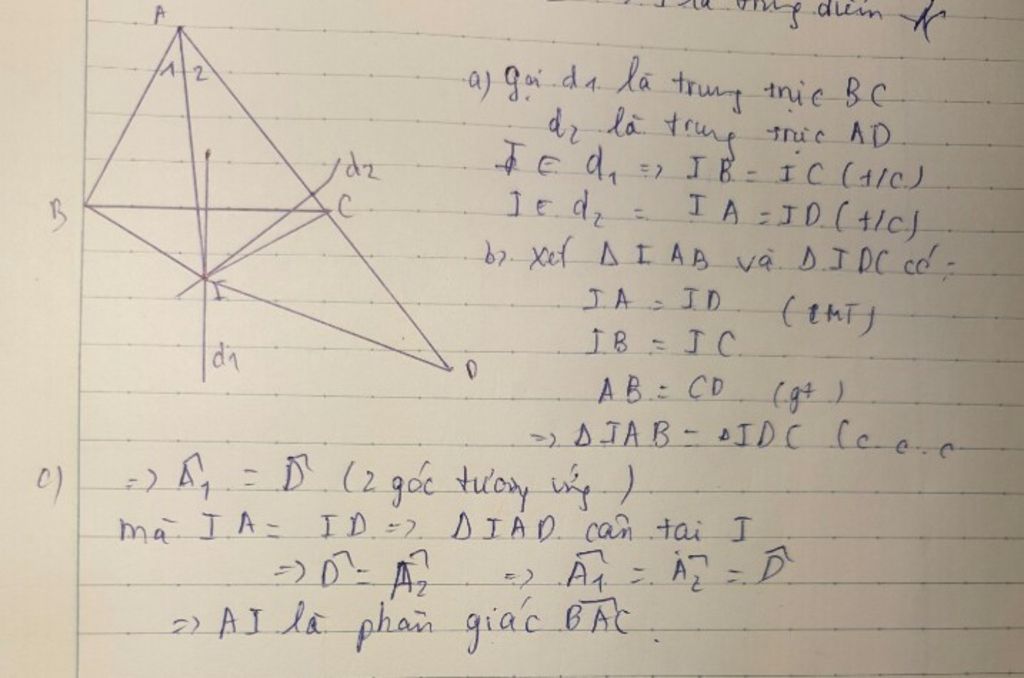 I là trung điểm
A
1 2
a) Gọi d1 là trung trực BC
d2 là trung trực AD
d2
I ∈ d1 => IB = IC (t/c)
B
C
I ∈ d2 = IA = ID (t/c)
b) xét Δ IAB và Δ IDC có:
I
IA = ID (CMT)
IB = IC
d1
D
AB = CD (gt)
=> Δ IAB = Δ IDC (c.c.c
c) => Â1 = D̂ (2 góc tương ứng)
mà IA = ID => Δ IAD cân tại I
=> D̂ = Â2 => Â1 = Â2 = D̂
=> AI là phân giác BÂC.